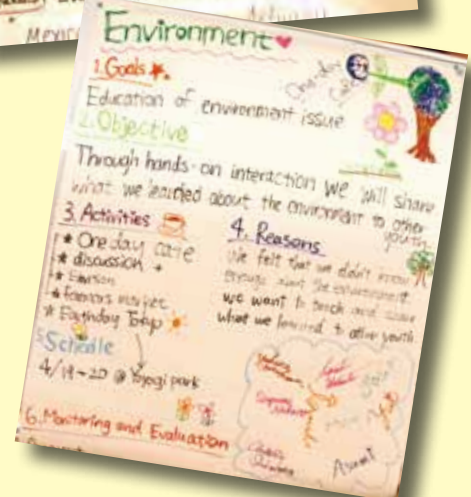 Mexico
Environment
1. Goals
One-day
Education of environment issue
2. Objective
Through hands-on interaction we will share
what we learned about the environment to other
youth
3. Activities
One day cafe
discussion
farmers market
Earthday Tokyo
4. Reasons
We felt that we didn't know
enough about the environment
we want to teach and share
what we learned to other youth
5. Schedle
4/19~20 @ Yoyogi park
6. Monitoring and Evaluation